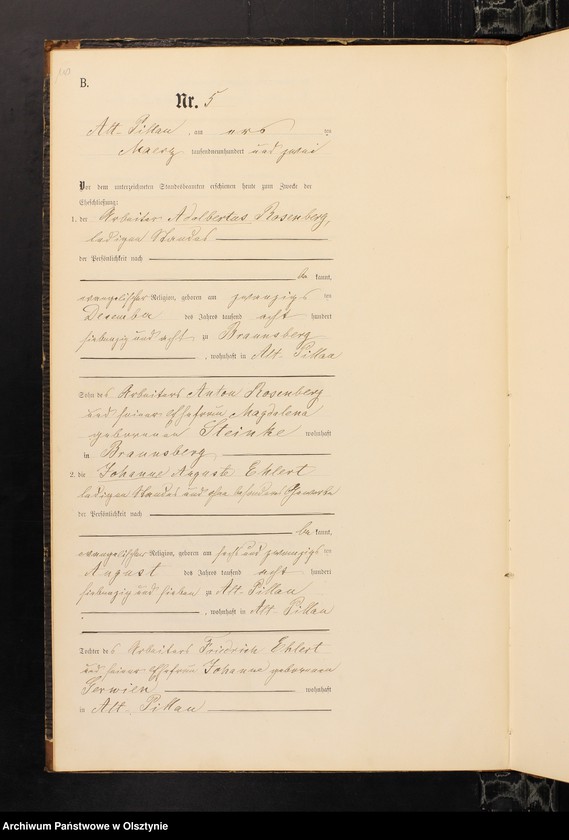 B.
Nr. 5
Alt-Pillau, am ers ten
Maerz tausendneunhundert und zwei
Vor dem unterzeichneten Standesbeamten erschienen heute zum Zwecke der
Eheschließung:
1. der Arbeiter Adolbertus Rosenberg,
ledigen Standes
der Persönlichkeit nach
be kannt,
evangelischer Religion, geboren am zwanzigs ten
Dezember des Jahres tausend acht hundert
siebenzig und acht zu Braunsberg
, wohnhaft in Alt-Pillau
Sohn des Arbeiters Anton Rosenberg
und seiner Ehefrau Magdalena
geborenen Steinke wohnhaft
in Braunsberg
2. die Johanne Auguste Ehlert
ledigen Standes und ohne besonderes Gewerbe
der Persönlichkeit nach
be kannt,
evangelischer Religion, geboren am sechs und zwanzigs ten
August des Jahres tausend acht hundert
siebenzig und sieben zu Alt-Pillau
, wohnhaft in Alt-Pillau
Tochter des Arbeiters Friedrich Ehlert
und seiner Ehefrau Johanne geborenen
Gerwien wohnhaft
in Alt-Pillau
Archiwum Państwowe w Olsztynie